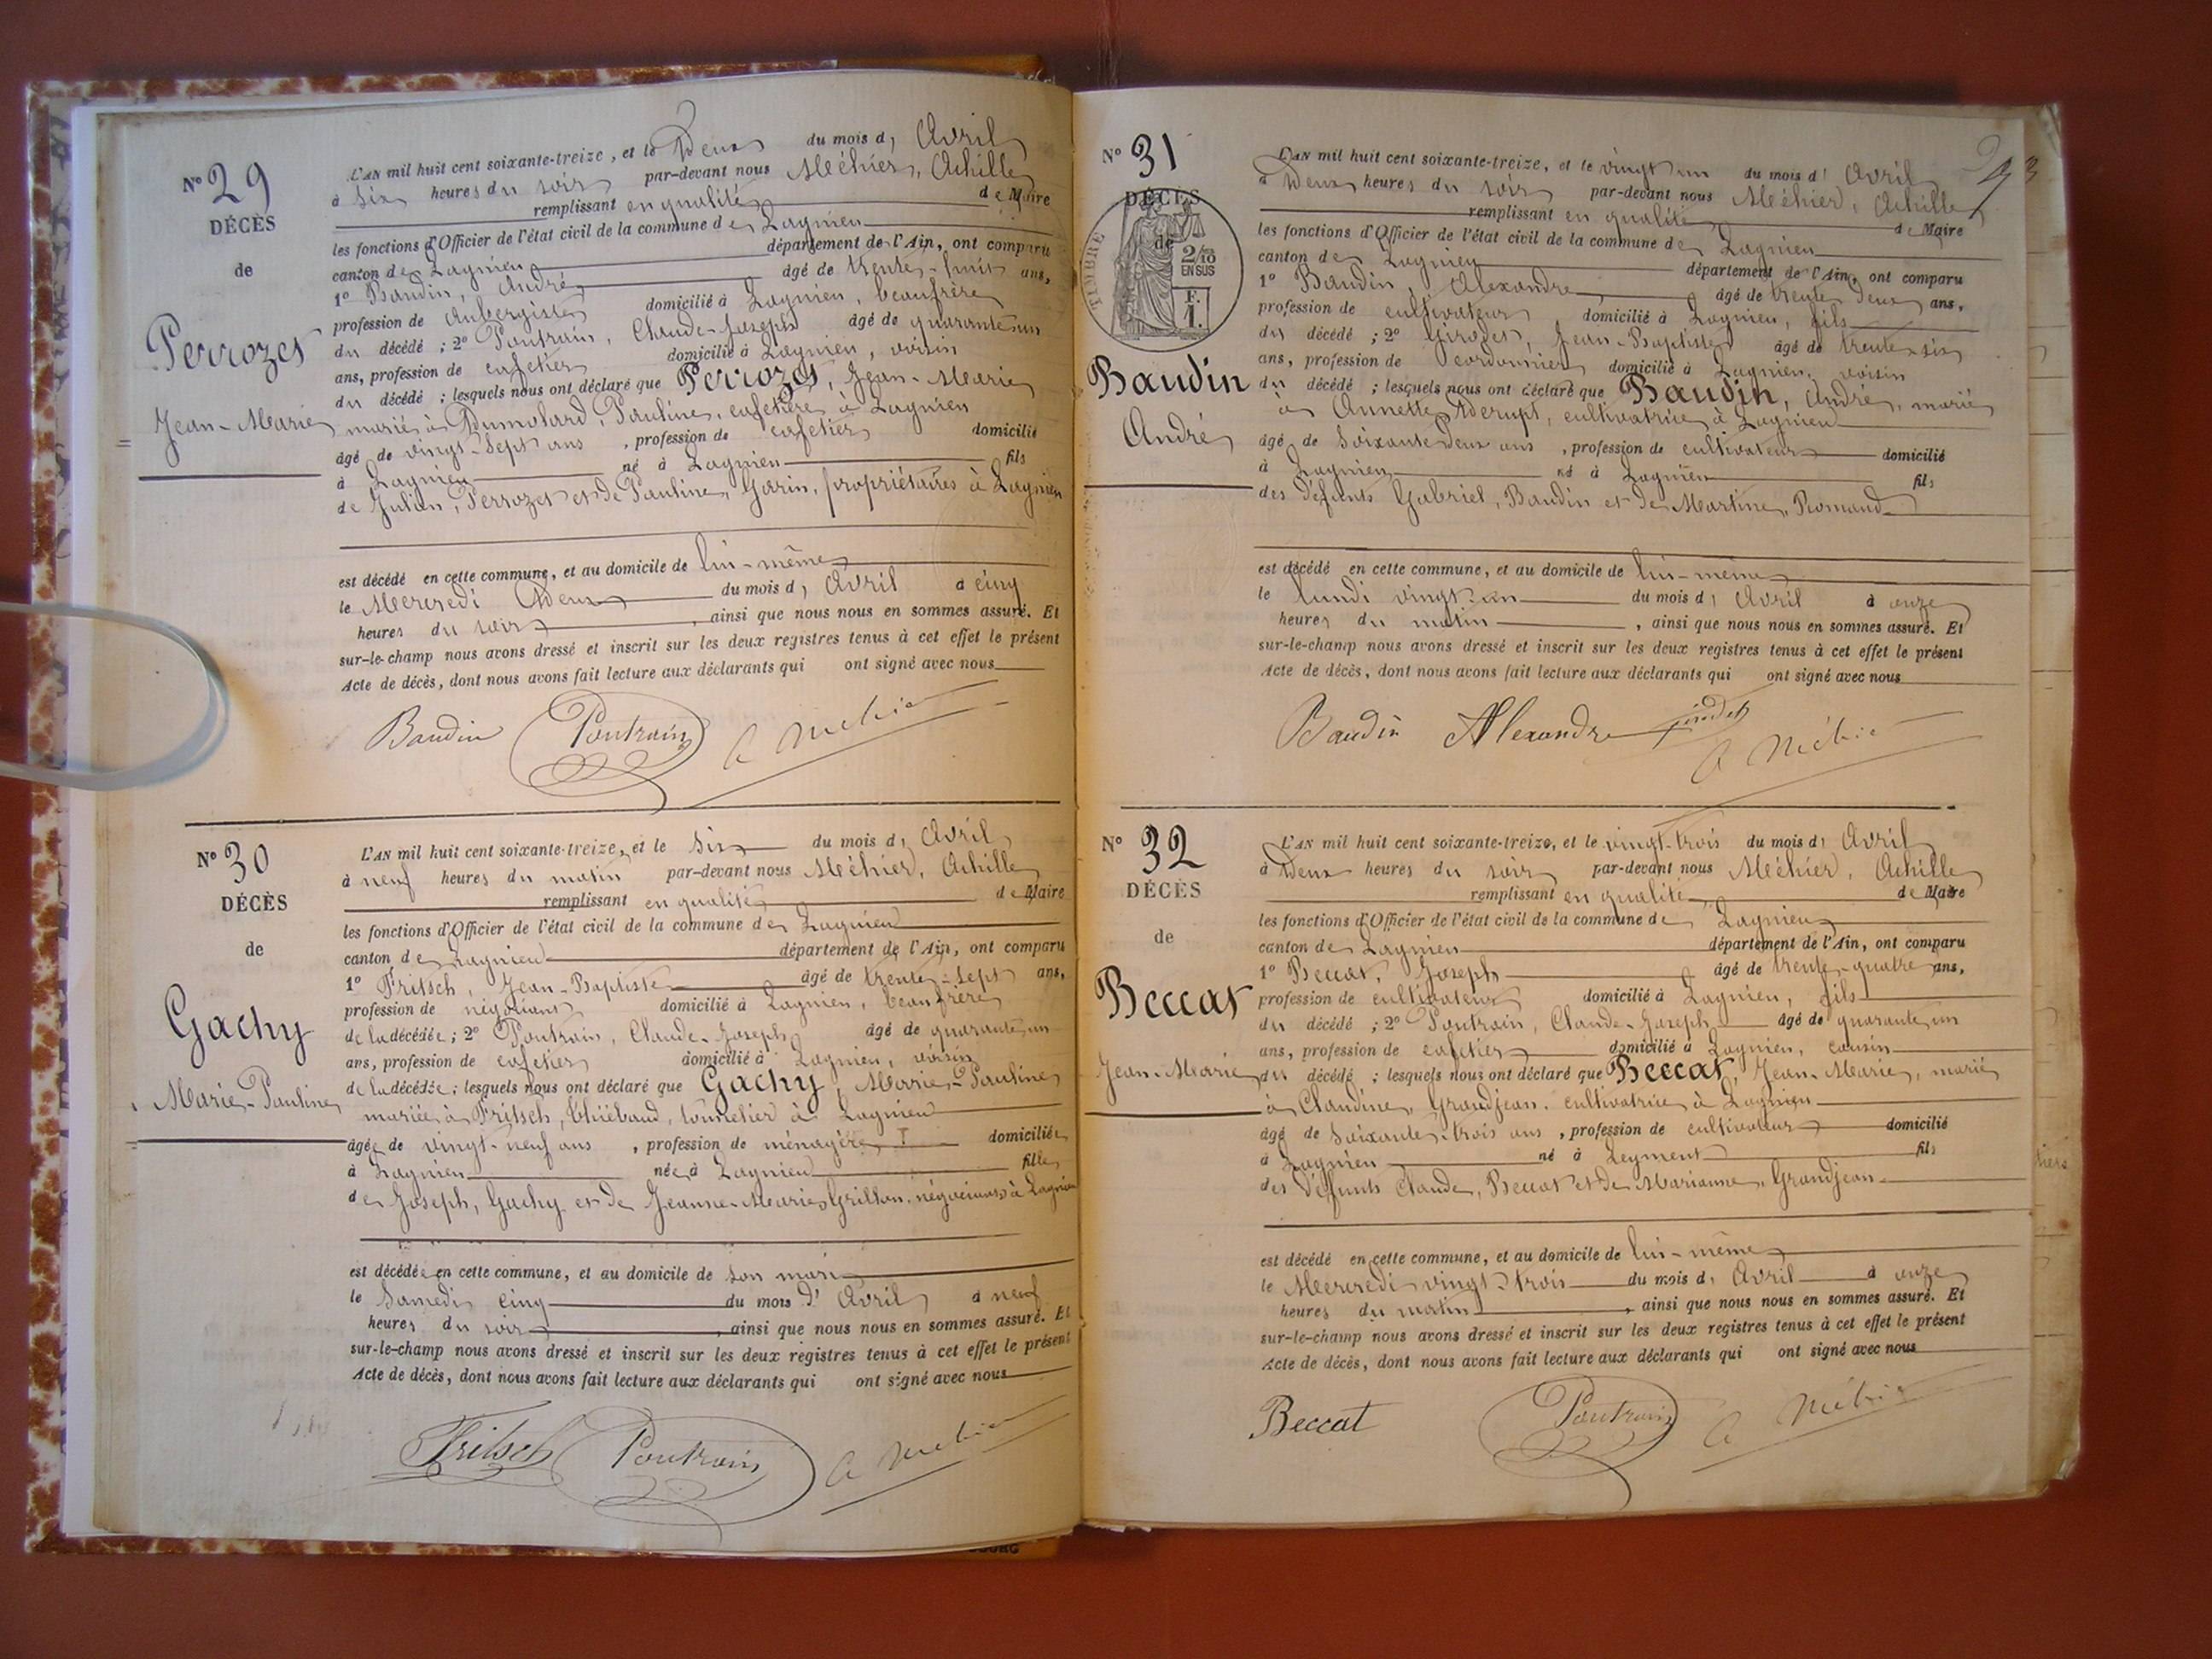 N° 29
DÉCÈS
de
Perrozet
Jean-Marie
L'AN mil huit cent soixante-treize, et le Deux du mois d' Avril
à six heures du soir par-devant nous Méhier, Achille
remplissant en qualité de Maire
les fonctions d'Officier de l'état civil de la commune de Lagnieu
canton de Lagnieu département de l'Ain, ont comparu
1° Baudin, André âgé de trente-huit ans,
profession de aubergiste domicilié à Lagnieu, beaufrère
du décédé ; 2° Poutrain, Claude-Joseph âgé de quarante un
ans, profession de cafetier domicilié à Lagnieu, voisin
du décédé ; lesquels nous ont déclaré que Perrozet, Jean-Marie
marié à Dumolard, Pauline, cafetière à Lagnieu
âgé de vingt-sept ans, profession de cafetier domicilié
à Lagnieu né à Lagnieu fils
de Julien, Perrozet et de Pauline, Garin, propriétaires à Lagnieu
est décédé en cette commune, et au domicile de lui-même
le Mercredi Deux du mois d' Avril à cinq
heures du soir, ainsi que nous nous en sommes assuré. Et
sur-le-champ nous avons dressé et inscrit sur les deux registres tenus à cet effet le présent
Acte de décès, dont nous avons fait lecture aux déclarants qui ont signé avec nous
Baudin Poutrain A Méhier
N° 30
DÉCÈS
de
Gachy
Marie-Pauline
L'AN mil huit cent soixante-treize, et le six du mois d' Avril
à neuf heures du matin par-devant nous Méhier, Achille
remplissant en qualité de Maire
les fonctions d'Officier de l'état civil de la commune de Lagnieu
canton de Lagnieu département de l'Ain, ont comparu
1° Fritsch, Jean-Baptiste âgé de trente-sept ans,
profession de négociant domicilié à Lagnieu, beaufrère
de la décédée ; 2° Poutrain, Claude-Joseph âgé de quarante un
ans, profession de cafetier domicilié à Lagnieu, voisin
de la décédée ; lesquels nous ont déclaré que Gachy, Marie-Pauline
mariée à Fritsch, Thiébaud, tonnelier à Lagnieu
âgée de vingt-neuf ans, profession de ménagère domiciliée
à Lagnieu née à Lagnieu fille
de Joseph, Gachy et de Jeanne-Marie Grillon, négociants à Lagnieu
est décédée en cette commune, et au domicile de son mari
le Samedi cinq du mois d' Avril à neuf
heures du soir, ainsi que nous nous en sommes assuré. Et
sur-le-champ nous avons dressé et inscrit sur les deux registres tenus à cet effet le présent
Acte de décès, dont nous avons fait lecture aux déclarants qui ont signé avec nous
Fritsch Poutrain A Méhier
N° 31
DÉCÈS
de
TIMBRE
2/10
EN SUS
F.
1.
Baudin
André
L'AN mil huit cent soixante-treize, et le vingt un du mois d' Avril
à Deux heures du soir par-devant nous Méhier, Achille
remplissant en qualité de Maire
les fonctions d'Officier de l'état civil de la commune de Lagnieu
canton de Lagnieu département de l'Ain, ont comparu
1° Baudin, Alexandre, âgé de trente deux ans,
profession de cultivateur, domicilié à Lagnieu, fils
du décédé ; 2° Girodet, Jean-Baptiste âgé de trente-six
ans, profession de cordonnier domicilié à Lagnieu, voisin
du décédé ; lesquels nous ont déclaré que Baudin, André, marié
à Annette Derupt, cultivatrice à Lagnieu
âgé de soixante Deux ans, profession de cultivateur domicilié
à Lagnieu né à Lagnieu fils
des défunts Gabriel, Baudin et de Martine, Romand
est décédé en cette commune, et au domicile de lui-même
le lundi vingt-un du mois d' Avril à onze
heures du matin, ainsi que nous nous en sommes assuré. Et
sur-le-champ nous avons dressé et inscrit sur les deux registres tenus à cet effet le présent
Acte de décès, dont nous avons fait lecture aux déclarants qui ont signé avec nous
Baudin Alexandre girodet
A Méhier
N° 32
DÉCÈS
de
Beccat
Jean-Marie
L'AN mil huit cent soixante-treize, et le vingt-trois du mois d' Avril
à Deux heures du soir par-devant nous Méhier, Achille
remplissant en qualité de Maire
les fonctions d'Officier de l'état civil de la commune de Lagnieu
canton de Lagnieu département de l'Ain, ont comparu
1° Beccat, Joseph âgé de trente-quatre ans,
profession de cultivateur domicilié à Lagnieu, fils
du décédé ; 2° Poutrain, Claude-Joseph âgé de quarante un
ans, profession de cafetier domicilié à Lagnieu, cousin
du décédé ; lesquels nous ont déclaré que Beccat, Jean-Marie, marié
à Claudine, Grandjean, cultivatrice à Lagnieu
âgé de soixante-trois ans, profession de cultivateur domicilié
à Lagnieu né à Leyment fils
des défunts Claude, Beccat et de Marianne, Grandjean
est décédé en cette commune, et au domicile de lui-même
le Mercredi vingt-trois du mois d' Avril à onze
heures du matin, ainsi que nous nous en sommes assuré. Et
sur-le-champ nous avons dressé et inscrit sur les deux registres tenus à cet effet le présent
Acte de décès, dont nous avons fait lecture aux déclarants qui ont signé avec nous
Beccat Poutrain A Méhier